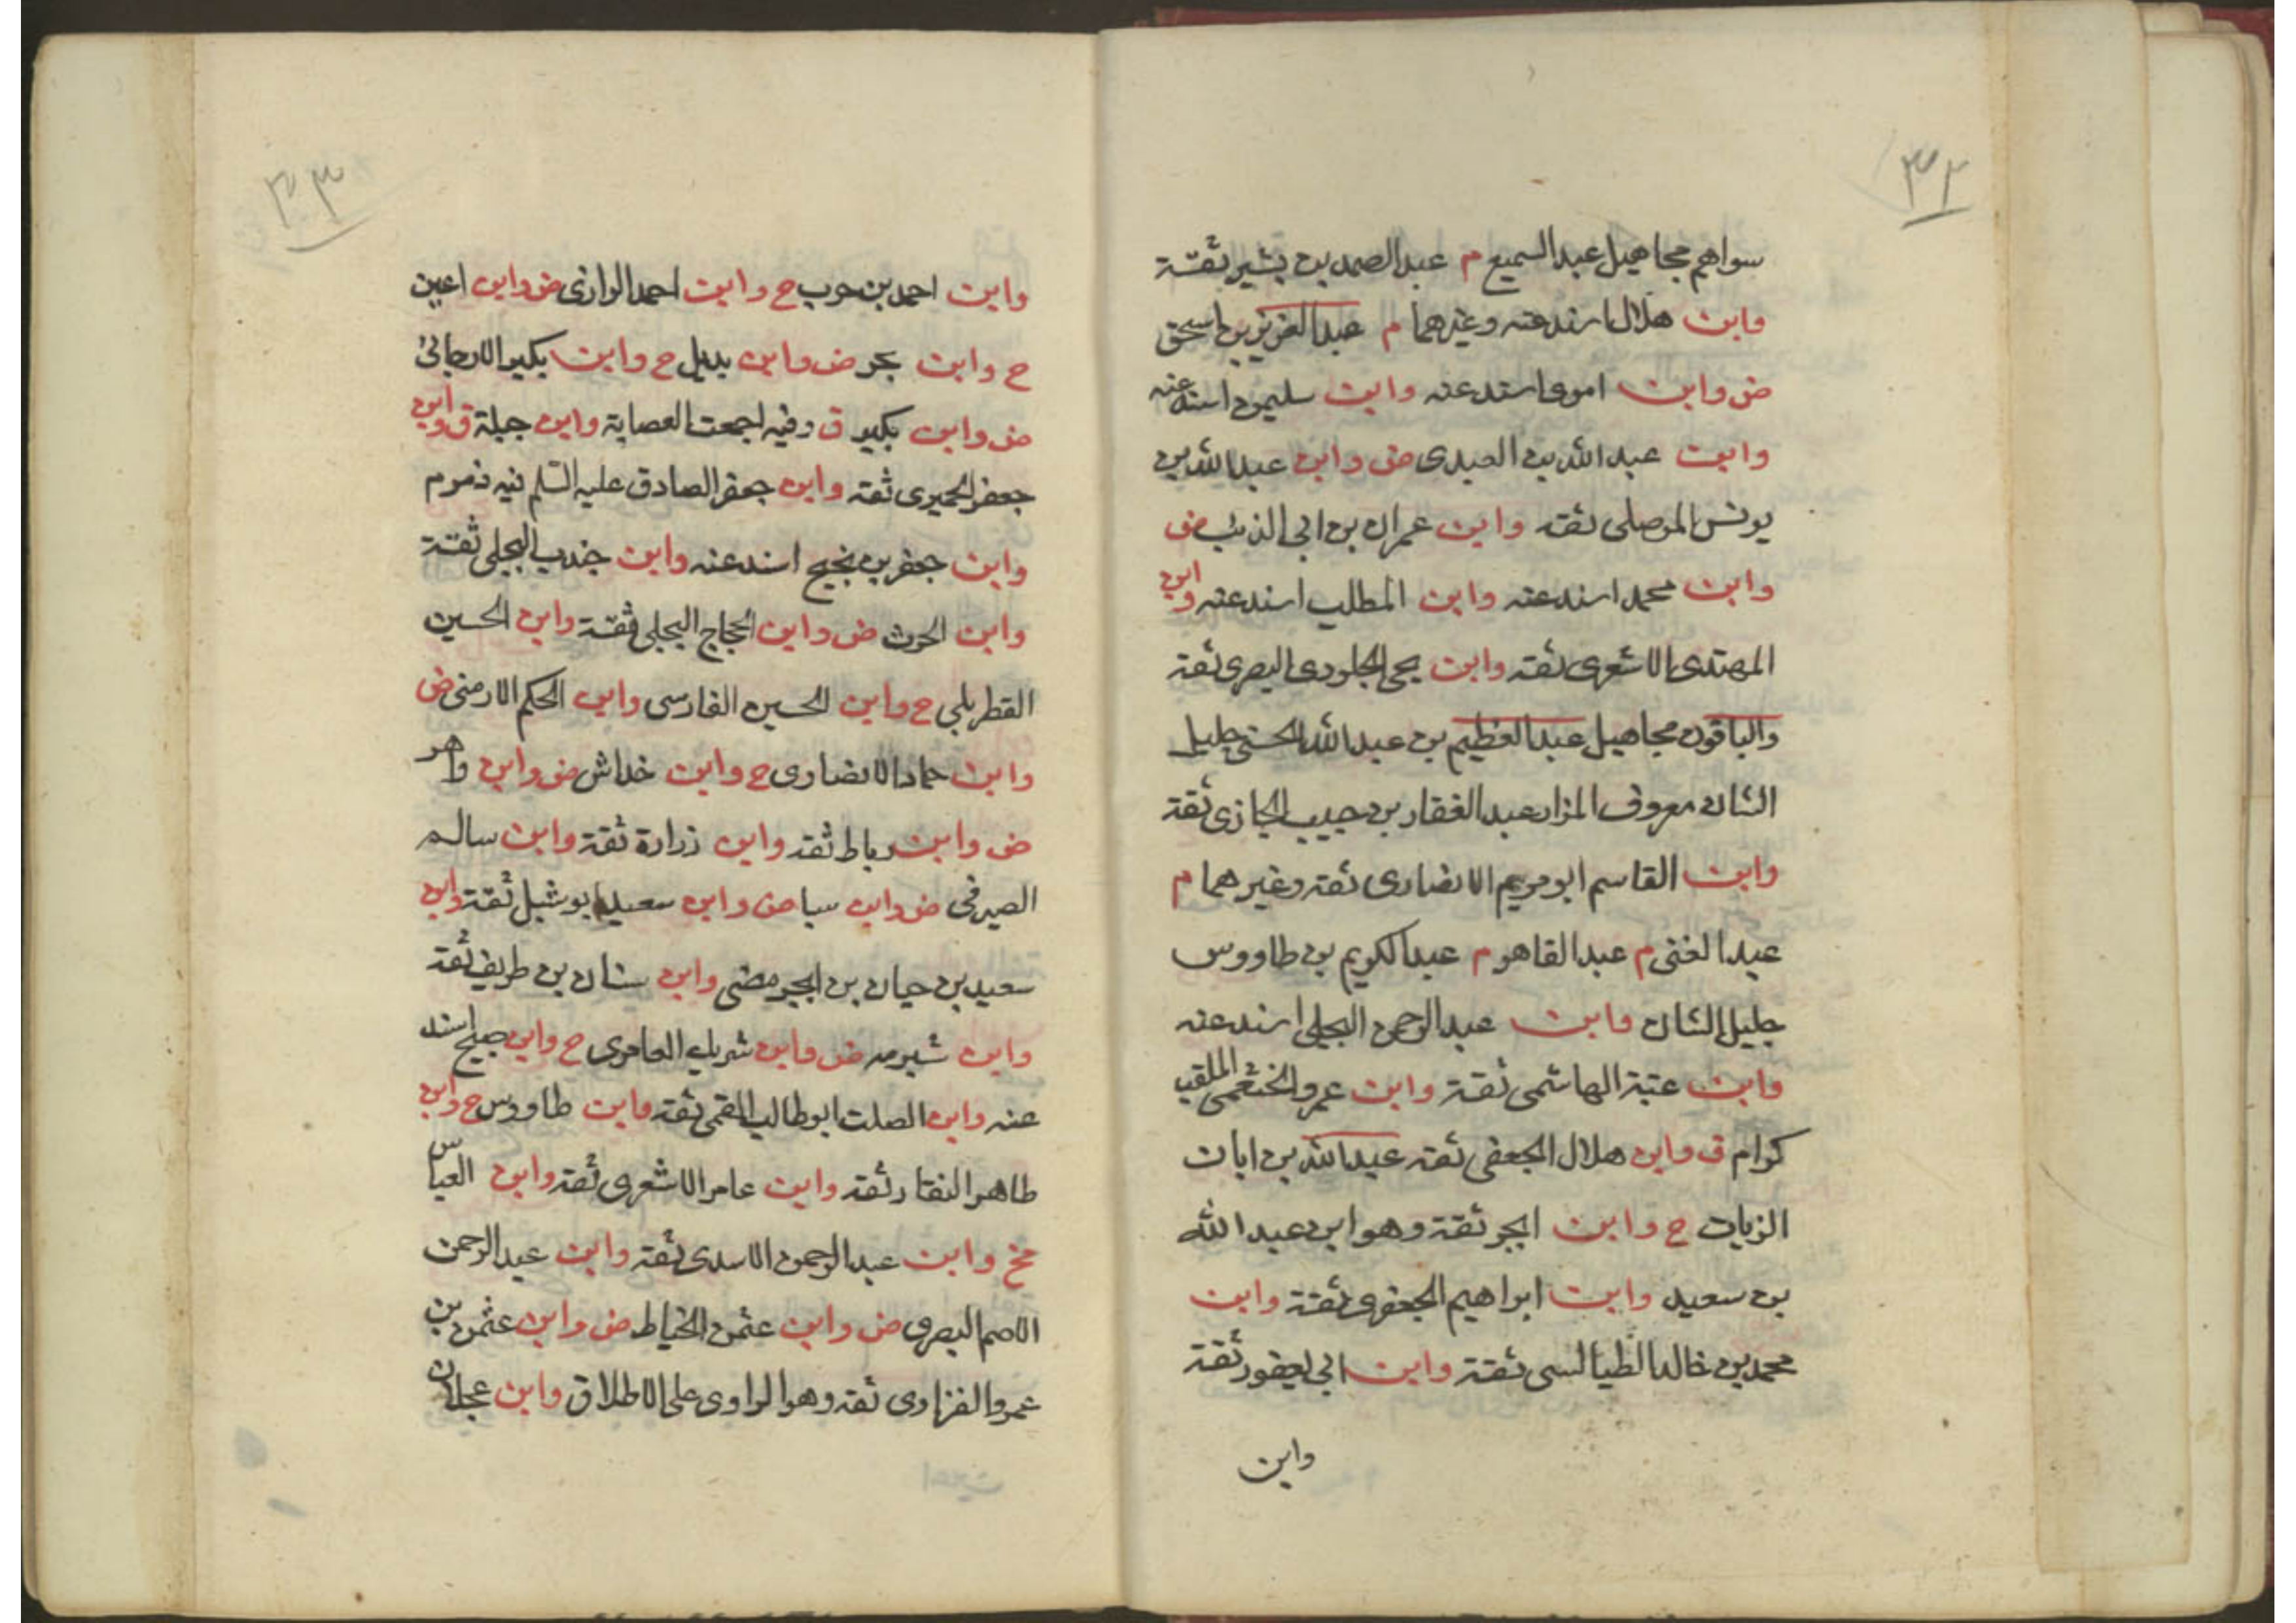 ٣٢
سواهم مجاهيل عبد السميع م عبد الصمد بن بشير ثقة
وابن هلال اسند عنه وغيرهما م عبد العزيز بن اسحق
ض وابن اموى اسند عنه وابن سليمن اسند عنه
وابن عبد الله بن العبدى ض وابن عبد الله بن
يونس الموصلى ثقه وابن عمران بن ابى الذئب ض
وابن محمد اسند عنه وابن المطلب اسند عنه وابن
المهتدى الاشعرى ثقه وابن يحى الجلودى البصرى ثقة
والباقون مجاهيل عبد العظيم بن عبد الله الحسنى جليل
الشان معروف المزار عبد الغفار بن حبيب الجازى ثقة
وابن القاسم ابو مريم الانصارى ثقة وغيرهما م
عبد الغنى م عبد القاهر م عبد الكريم بن طاووس
جليل الشان وابن عبد الرحمن البجلى اسند عنه
وابن عتبة الهاشمى ثقة وابن عمرو الخثعمى الملقب
كرام ق وابن هلال الجعفى ثقه عبد الله بن ابان
الزيات ح وابن ابجر ثقة وهو ابن عبد الله
بن سعيد وابن ابراهيم الجعفرى ثقة وابن
محمد بن خالد الطيالسى ثقة وابن ابى يعفور ثقة
وابن
٣٣
وابن احمد بن حرب ح وابن احمد الرازى ض وابن اعين
ح وابن بحر ض وابن بديل ح وابن بكير الارجانى
ض وابن بكير ق وفيه اجمعت العصابة وابن جبلة ق وابن
جعفر الحميرى ثقه وابن جعفر الصادق عليه السلم فيه ذموم
وابن جعفر بن نجيح اسند عنه وابن جندب البجلى ثقة
وابن الحرث ض وابن الحجاج البجلى ثقة وابن الحسين
القطربلى ح وابن الحسين الفارسى وابن الحكم الارمنى ض
وابن حماد الانصارى ح وابن خداش ض وابن داهر
ض وابن رباط ثقه وابن زرارة ثقة وابن سالم
الصيرفى ض وابن سبا ض وابن سعيد ابو شبل ثقة وابن
سعيد بن حيان بن ابجر مضى وابن سنان بن طريف ثقة
وابن شبرمه ض وابن شريك العامرى ح وابن صبيح اسند
عنه وابن الصلت ابو طالب القمى ثقة وابن طاووس ح وابن
طاهر النقار ثقه وابن عامر الاشعرى ثقة وابن العباس
مخ وابن عبد الرحمن الاسدى ثقة وابن عبد الرحمن
الاصم البصرى ض وابن عثمن الخياط ض وابن عثمن بن
عمرو الفزارى ثقة وهو الراوى على الاطلاق وابن عجلان